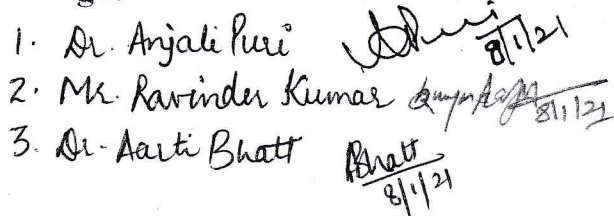 1. Dr. Anjali Puri APuri 8/1/21
2. Mr. Ravinder Kumar 8/1/21
3. Dr. Aarti Bhatt ABhatt 8/1/21